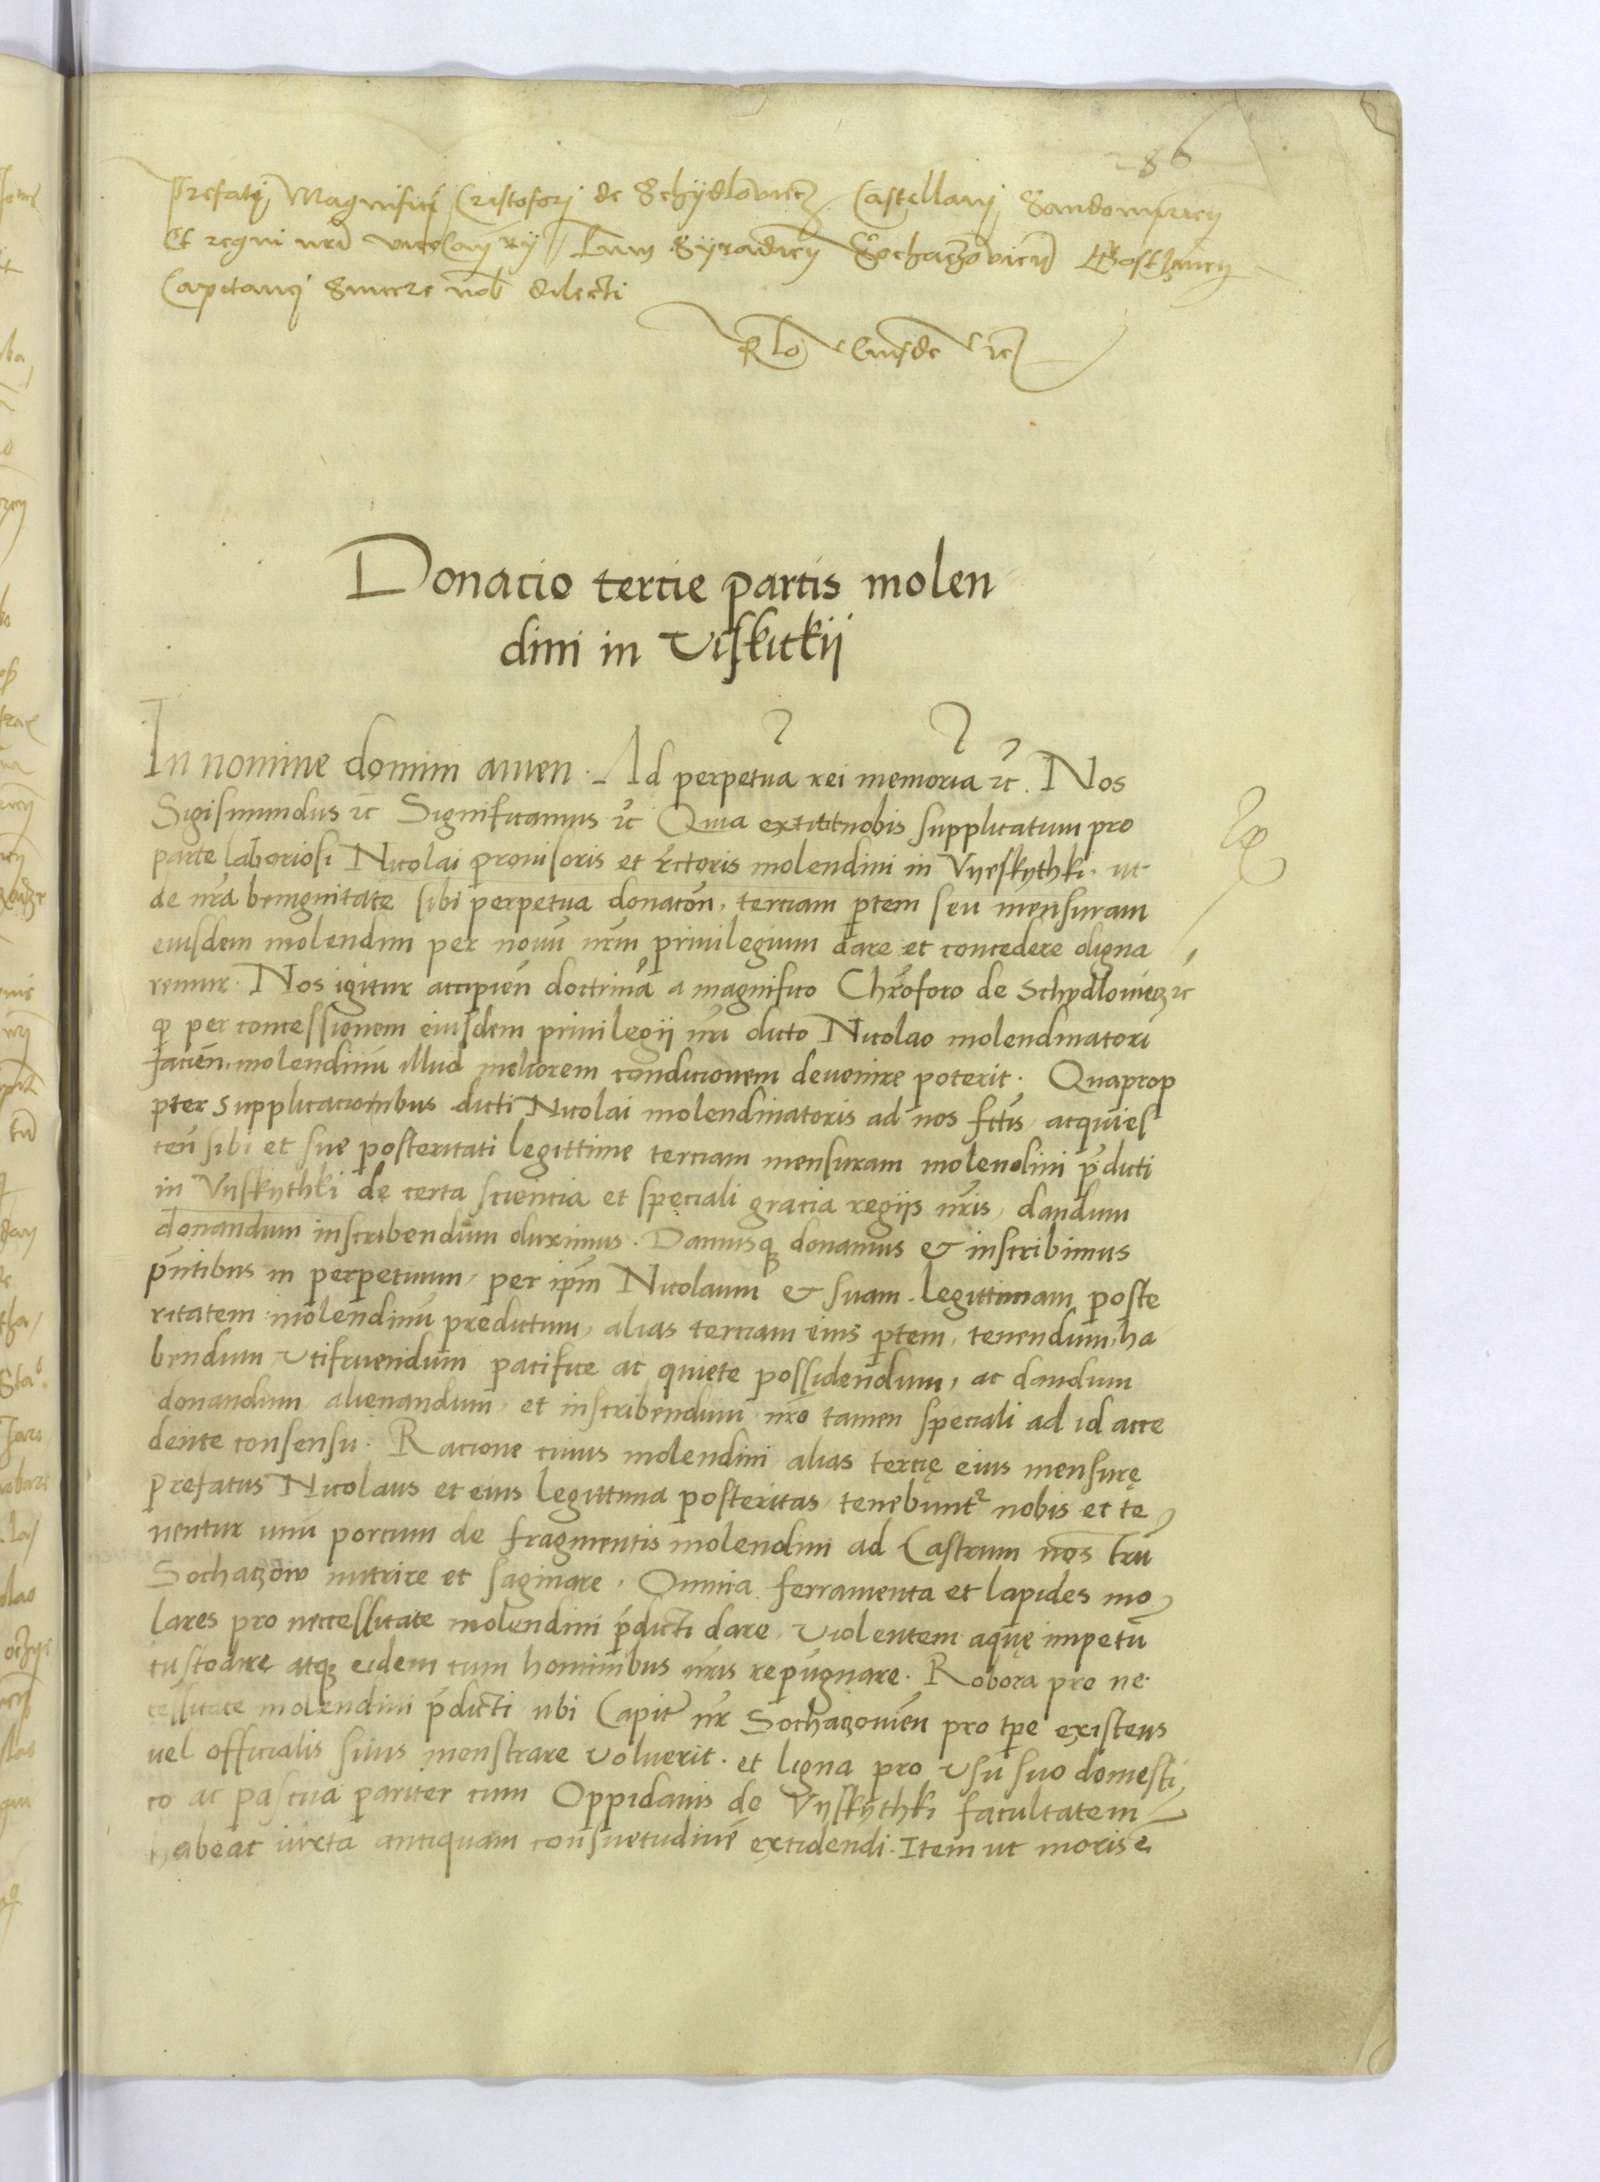 86
Prefati Magnifici Cristoferj de Schÿdloviecz Castellanj Sandomiricñ
Et regni nr̃i viceCancÿ Siradicñ Sochaczoviceñ Gostÿnicñ
Capitanej Sincere nob̃ dilecti
Rlo Eiusde rc̃
Donacio tercie partis molen
dini in Viskitkii
In nomine domini amen. Ad perpetua rei memoria rc̃. Nos
Sigismundus rc̃ Significamus rc̃ Quia extitit nobis supplicatum pro
parte laboriosi Nicolai provisoris et rectoris molendini in Vyeskythki. ut
de nr̃a benignitate sibi perpetua donacõn, terciam ptem seu mensuram
eiusdem molendini per nouũ nr̃m priuilegium dare et concedere digna
remur. Nos igitur accipieñ doctrinã a magnifico Chr̃oforo de Schydlouiecz rc̃
q per concessionem eiusdem priuilegii nr̃i dicto Nicolao molendinatori
facieñ. molendinũ illud meliorem condicionem deuenire poterit. Quaprop
pter supplicacionibus dicti Nicolai molendinatoris ad nos fctis acquies
ceñ sibi et sue posteritati legittime terciam mensuram molendini p̃dicti
in Vyskythki de certa sciencia et speciali gracia regiis nr̃is, dandum
donandum inscribendum duximus. Damusq donamus & inscribimus
pñtibus in perpetuum, per ip̃m Nicolaum & suam legittimam poste
ritatem molendinũ predictum, alias terciam eius ptem, tenendum, ha
bendum utifruendum pacifice ac quiete possidendum, ac dandum
donandum alienandum et inscribendum nr̃o tamen speciali ad id acce
dente consensu. Racione cuius molendini alias tercię eius mensurę
prefatus Nicolaus et eius legittima posteritas tenebunt nobis et te
nentur unũ porcum de fragmentis molendini ad Castrum nos trũ
Sochaczow nutrire et saginare. Omnia ferramenta et lapides mo
lares pro necessitate molendini p̃dicti dare. Violentem aquę impetũ
custodire atq eidem cum hominibus nr̃is repugnare. Robora pro ne
cessitate molendini p̃dicti ubi Capit nr̃ Sochaczouieñ pro tp̃e existens
uel officialis suus menstrare voluerit. et ligna pro usu suo domesti
co ac pascua pariter cum Oppidanis de Vyskythki facultatem
habeat iuxta antiquam consuetudinẽ excidendi. Item ut moris ẽ